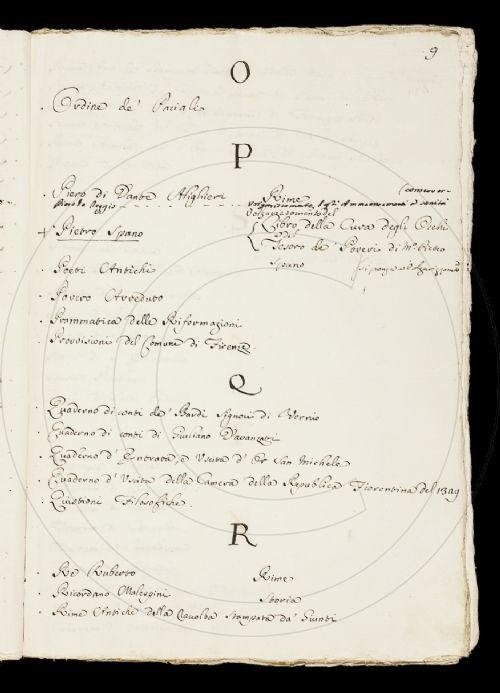 9
O
. Ordine de' Paciali
P
. Piero di Dante Alighieri Rime
Piero da Reggio Volgarizzamento degli Ammonimenti
Volgarizzamento del
+ Pietro Spano Libro della Cura degli Occhi
e del
Tesoro de' Poveri di M.o Pietro
Spano
. Poeti Antichi
. Povero Avveduto
. Prammatica delle Riformagioni
. Provvisioni del Comune di Firenze
Q
. Quaderno di conti de' Bardi Signori di Vernio
. Quaderno di conti di Giuliano Davanzati
. Quaderno d'Entrata, e Uscita d'Or San Michele
. Quaderno d'Uscita della Camera della Repubblica Fiorentina del 1349
. Quistioni Filosofiche.
R
. Re Ruberto Rime
. Ricordano Malespini Storia
. Rime Antiche della Raccolta Stampata da' Giunti